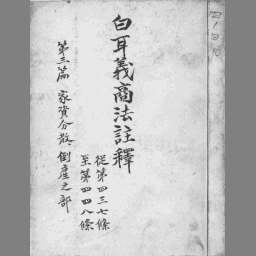 白耳義商法註釋
從第四三七條
至第四四八條
第三篇 家資分散、倒産之部